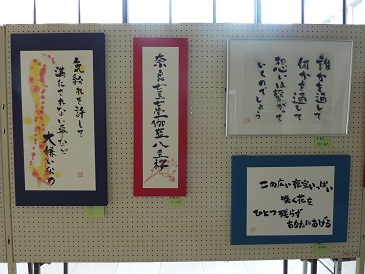 気紛れを許して
満たされない夢など
大嫌いなの
奈良七重七堂伽藍八重桜
誰かを通して
何かを通して
想いは繋がって
いくのでしょう
この広い野原いっぱい
咲く花を
ひとつ残らず
あなたにあげる